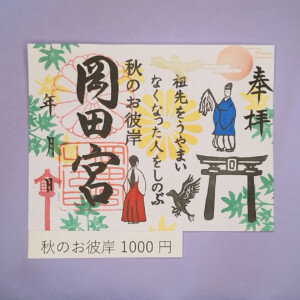 奉拝
祖先をうやまい
なくなった人をしのぶ
秋のお彼岸
岡田宮
年 月 日
秋のお彼岸 1000円